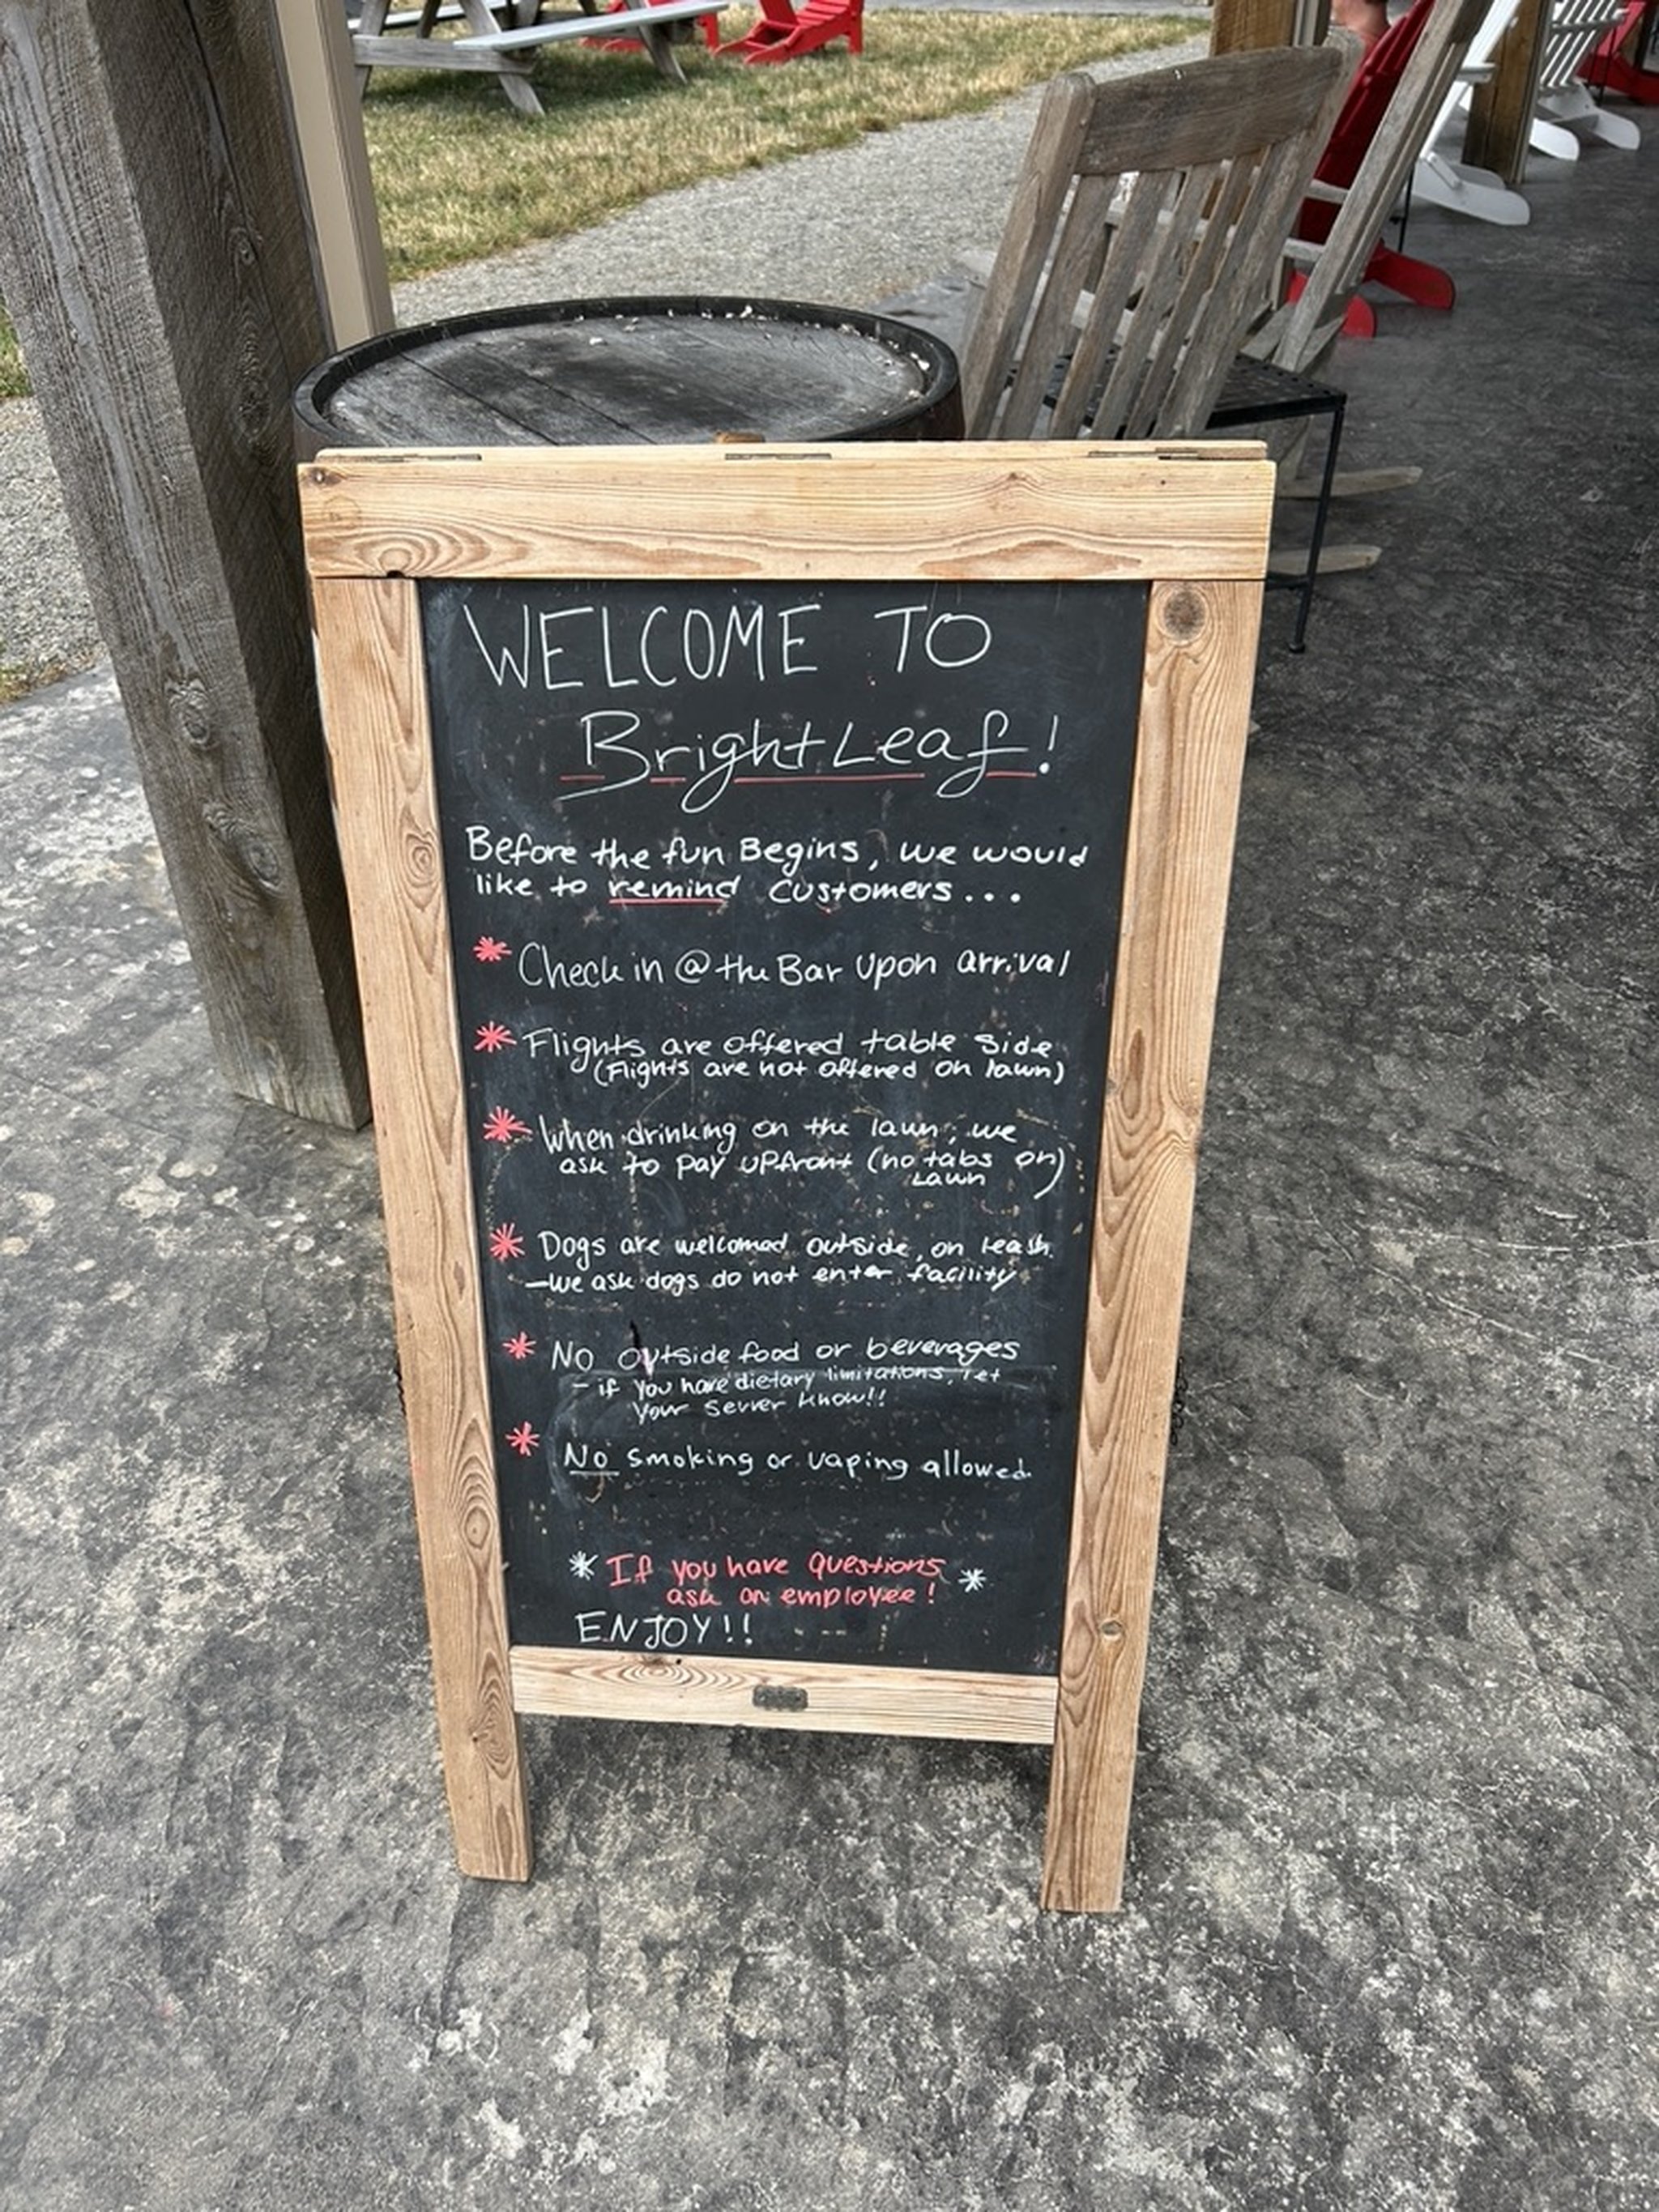 WELCOME TO
BrightLeaf!
Before the fun Begins, we would
like to remind customers...
* Check in @ the Bar Upon arrival
* Flights are offered table side
(Flights are not offered on lawn)
* When drinking on the lawn, we
ask to pay upfront (no tabs on
Lawn)
* Dogs are welcomed outside, on leash.
-we ask dogs do not enter facility
* No outside food or beverages
- if you have dietary limitations, let
your server know!!
* No smoking or vaping allowed.
* If you have questions *
ask an employee!
ENJOY!!